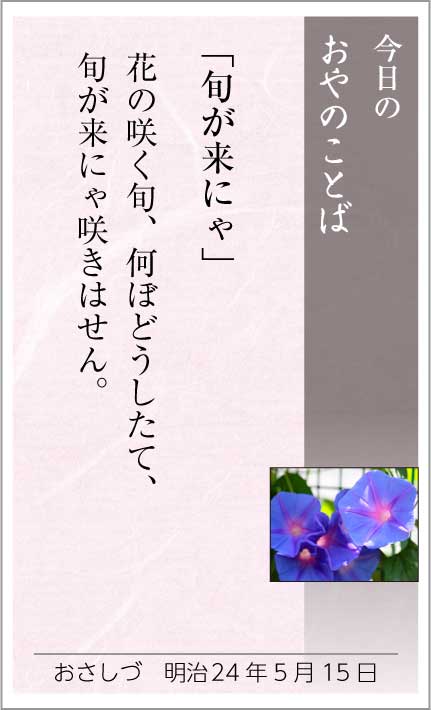 今日の
おやのことば
「旬が来にゃ」
花の咲く旬、何ぼどうしたて、
旬が来にゃ咲きはせん。
おさしづ　明治24年5月15日